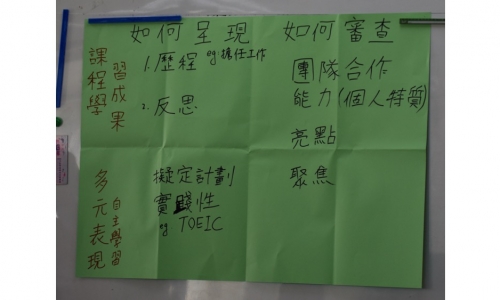 如何呈現
如何審查
課程學
習成果
1.歷程 eg:擔任工作
2.反思
團隊合作
能力(個人特質)
亮點
聚焦
多元表現
自主學習
擬定計劃
實踐性
eg TOEIC